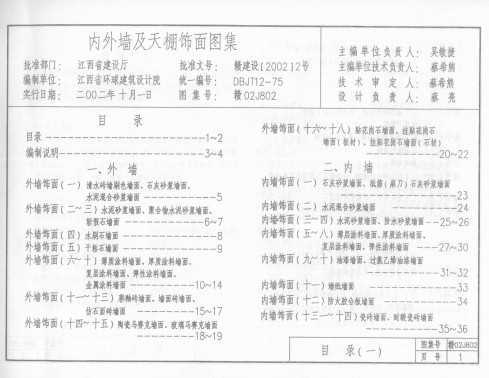 内外墙及天棚饰面图集
批准部门: 江西省建设厅 批准文号: 赣建设(2002)12号
编制单位: 江西省环球建筑设计院 统一编号: DBJT12-75
实行日期: 二00二年十月一日 图集号: 赣02J802
主编单位负责人: 吴敏捷
主编单位技术负责人: 蔡希熊
技术审定人: 蔡希熊
设计负责人: 蔡亮
目 录
目录 1~2
编制说明 3~4
一、外 墙
外墙饰面(一) 清水砖墙刷色墙面、石灰砂浆墙面、
水泥混合砂浆墙面 5
外墙饰面(二~三) 水泥砂浆墙面、聚合物水泥砂浆墙面、
粘假石墙面 6~7
外墙饰面(四) 水刷石墙面 8
外墙饰面(五) 干粘石墙面 9
外墙饰面(六~十) 薄质涂料墙面、厚质涂料墙面、
复层涂料墙面、弹性涂料墙面、
金属涂料墙面 10~14
外墙饰面(十一~十三) 彩釉砖墙面、墙面砖墙面、
仿石面砖墙面 15~17
外墙饰面(十四~十五) 陶瓷马赛克墙面、玻璃马赛克墙面
18~19
外墙饰面(十六~十八) 贴花岗石墙面、挂贴花岗石
墙面(板材)、挂贴花岗石墙面(石材)
20~22
二、内 墙
内墙饰面(一) 石灰砂浆墙面、纸筋(麻刀)石灰砂浆墙面
23
内墙饰面(二) 水泥混合砂浆墙面 24
内墙饰面(三~四) 水泥砂浆墙面、防水砂浆墙面 25~26
内墙饰面(五~八) 薄层涂料墙面、厚质涂料墙面、
复层涂料墙面、弹性墙面 27~30
内墙饰面(九~十) 油漆墙面、过氯乙烯油漆墙面
31~32
内墙饰面(十一) 墙纸墙面 33
内墙饰面(十二) 防火胶合板墙面 34
内墙饰面(十三~十四) 瓷砖墙面、耐酸瓷砖墙面
35~36
目 录(一)
图集号 赣02J802
页号 1